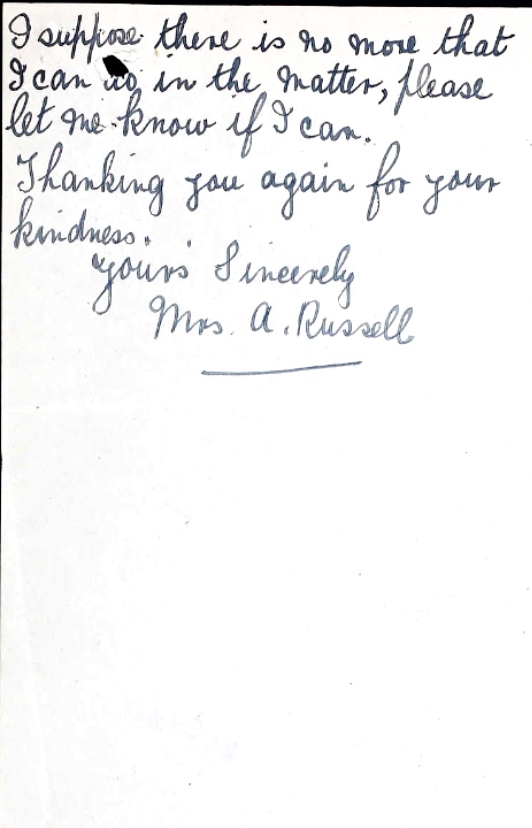 I suppose there is no more that
I can do in the matter, please
let me know if I can.
Thanking you again for your
kindness.
Yours Sincerely
Mrs. A. Russell